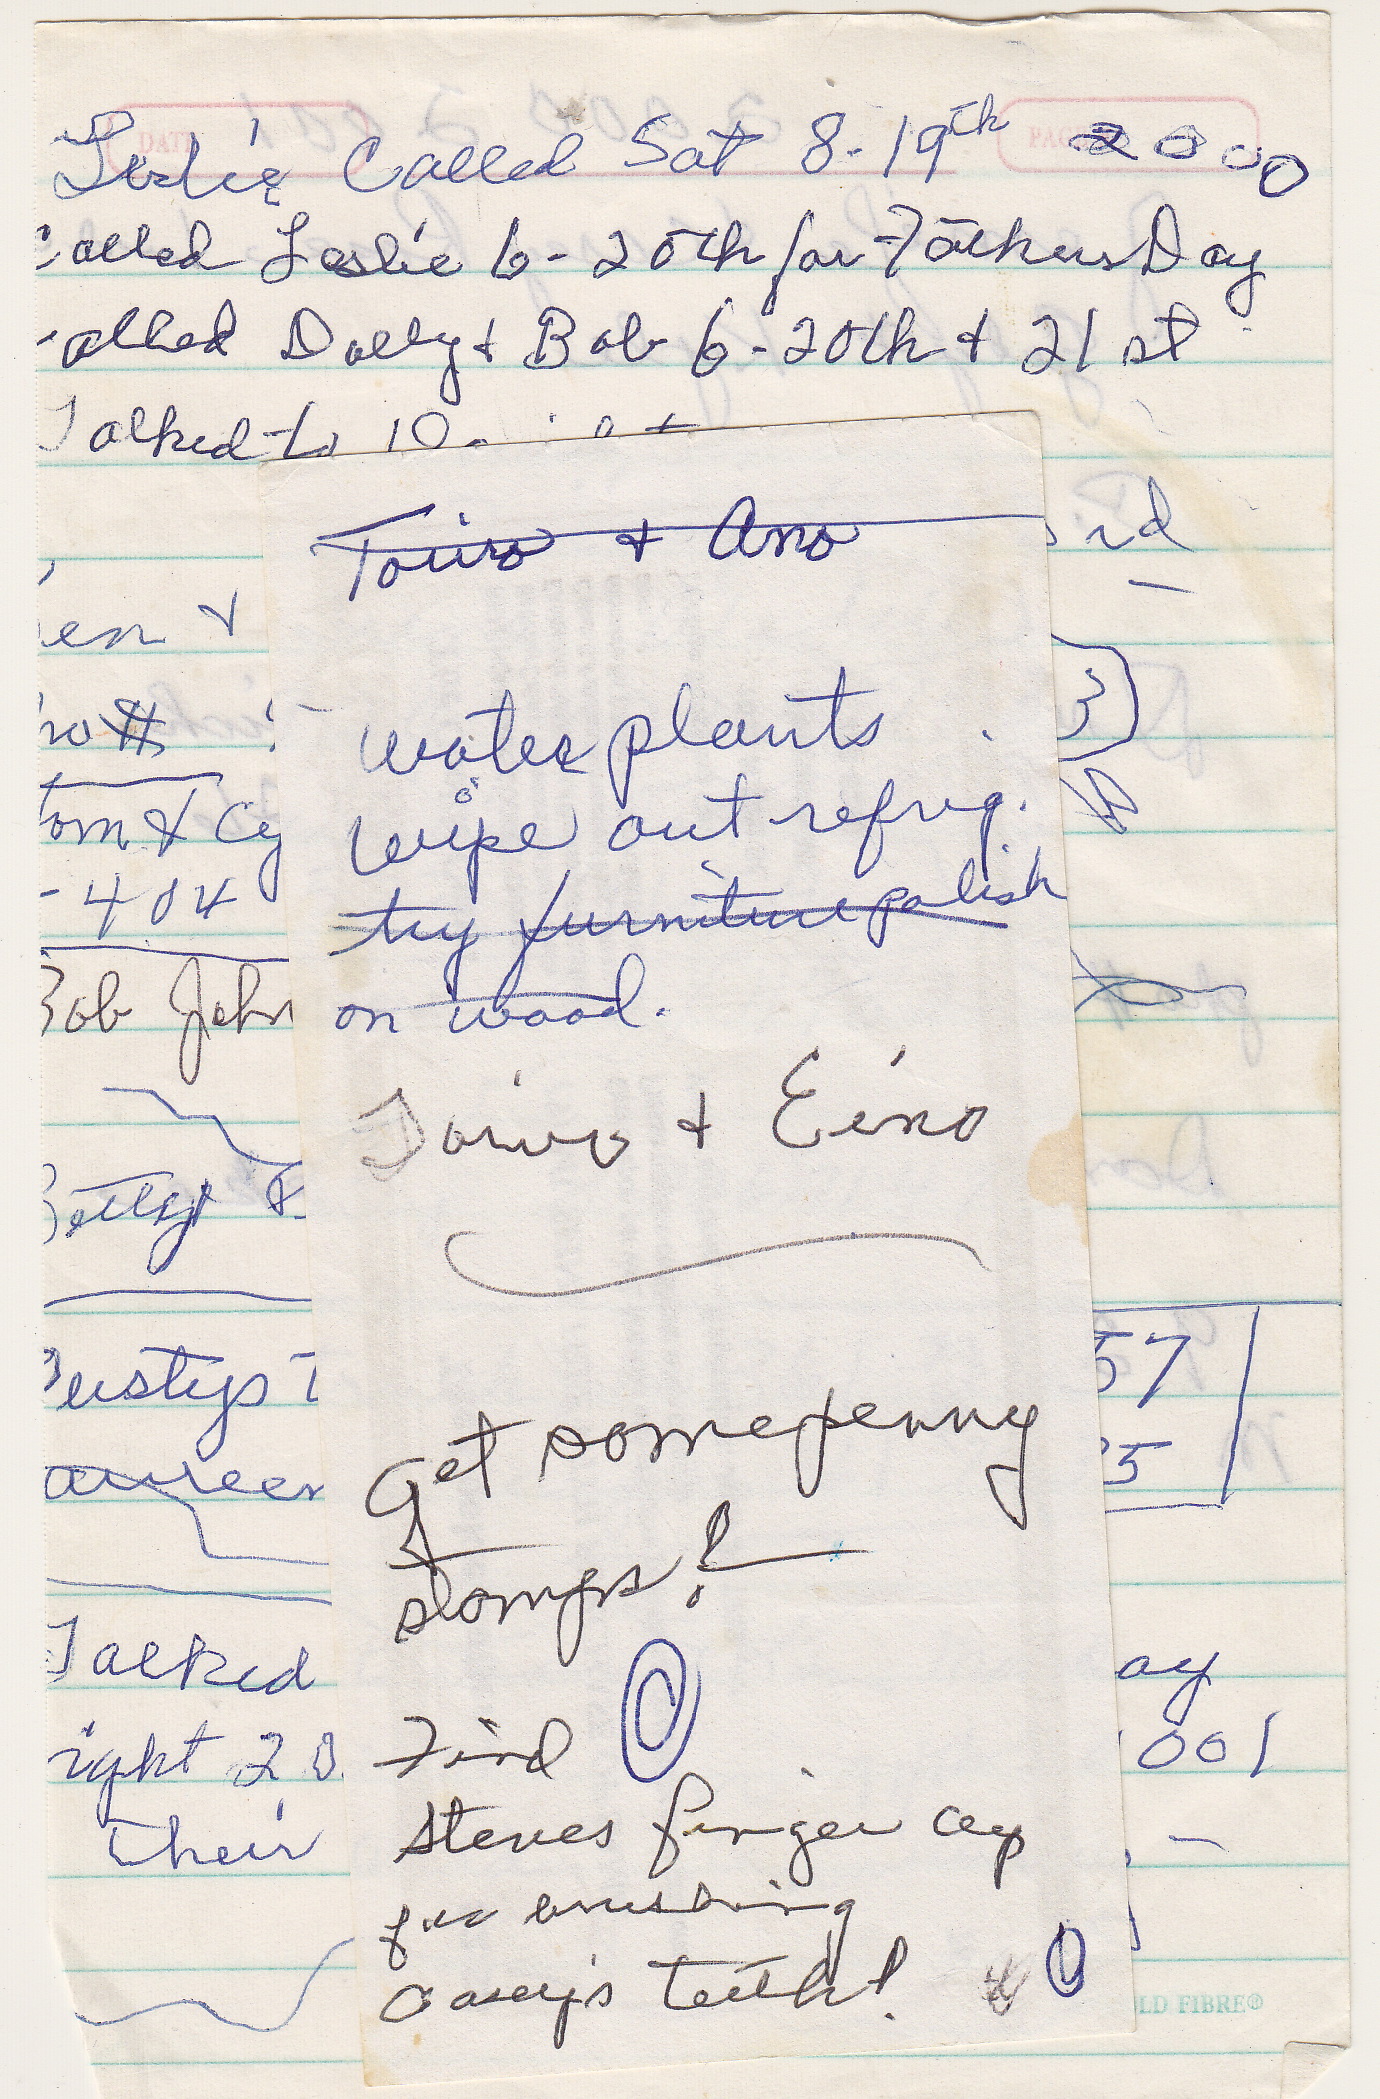 DATE
PAGE
Leslie Called Sat 8-19th 2000
Called Leslie 6-20th for Fathers Day
Called Dolly + Bob 6-20th + 21st
Talked to
rd
en +
no #
3)
Tom + Cy
-404
Bob John
Betty &
57
5
aureen
Talked
ay
ight 20
001
their
LD FIBRE®
Toivo + Ano
water plants
wipe out refrig.
try furniture polish
on wood.
Toivo + Eino
Get some penny
stamps!
Find
Steves finger cap
for brushing
Casey's teeth!